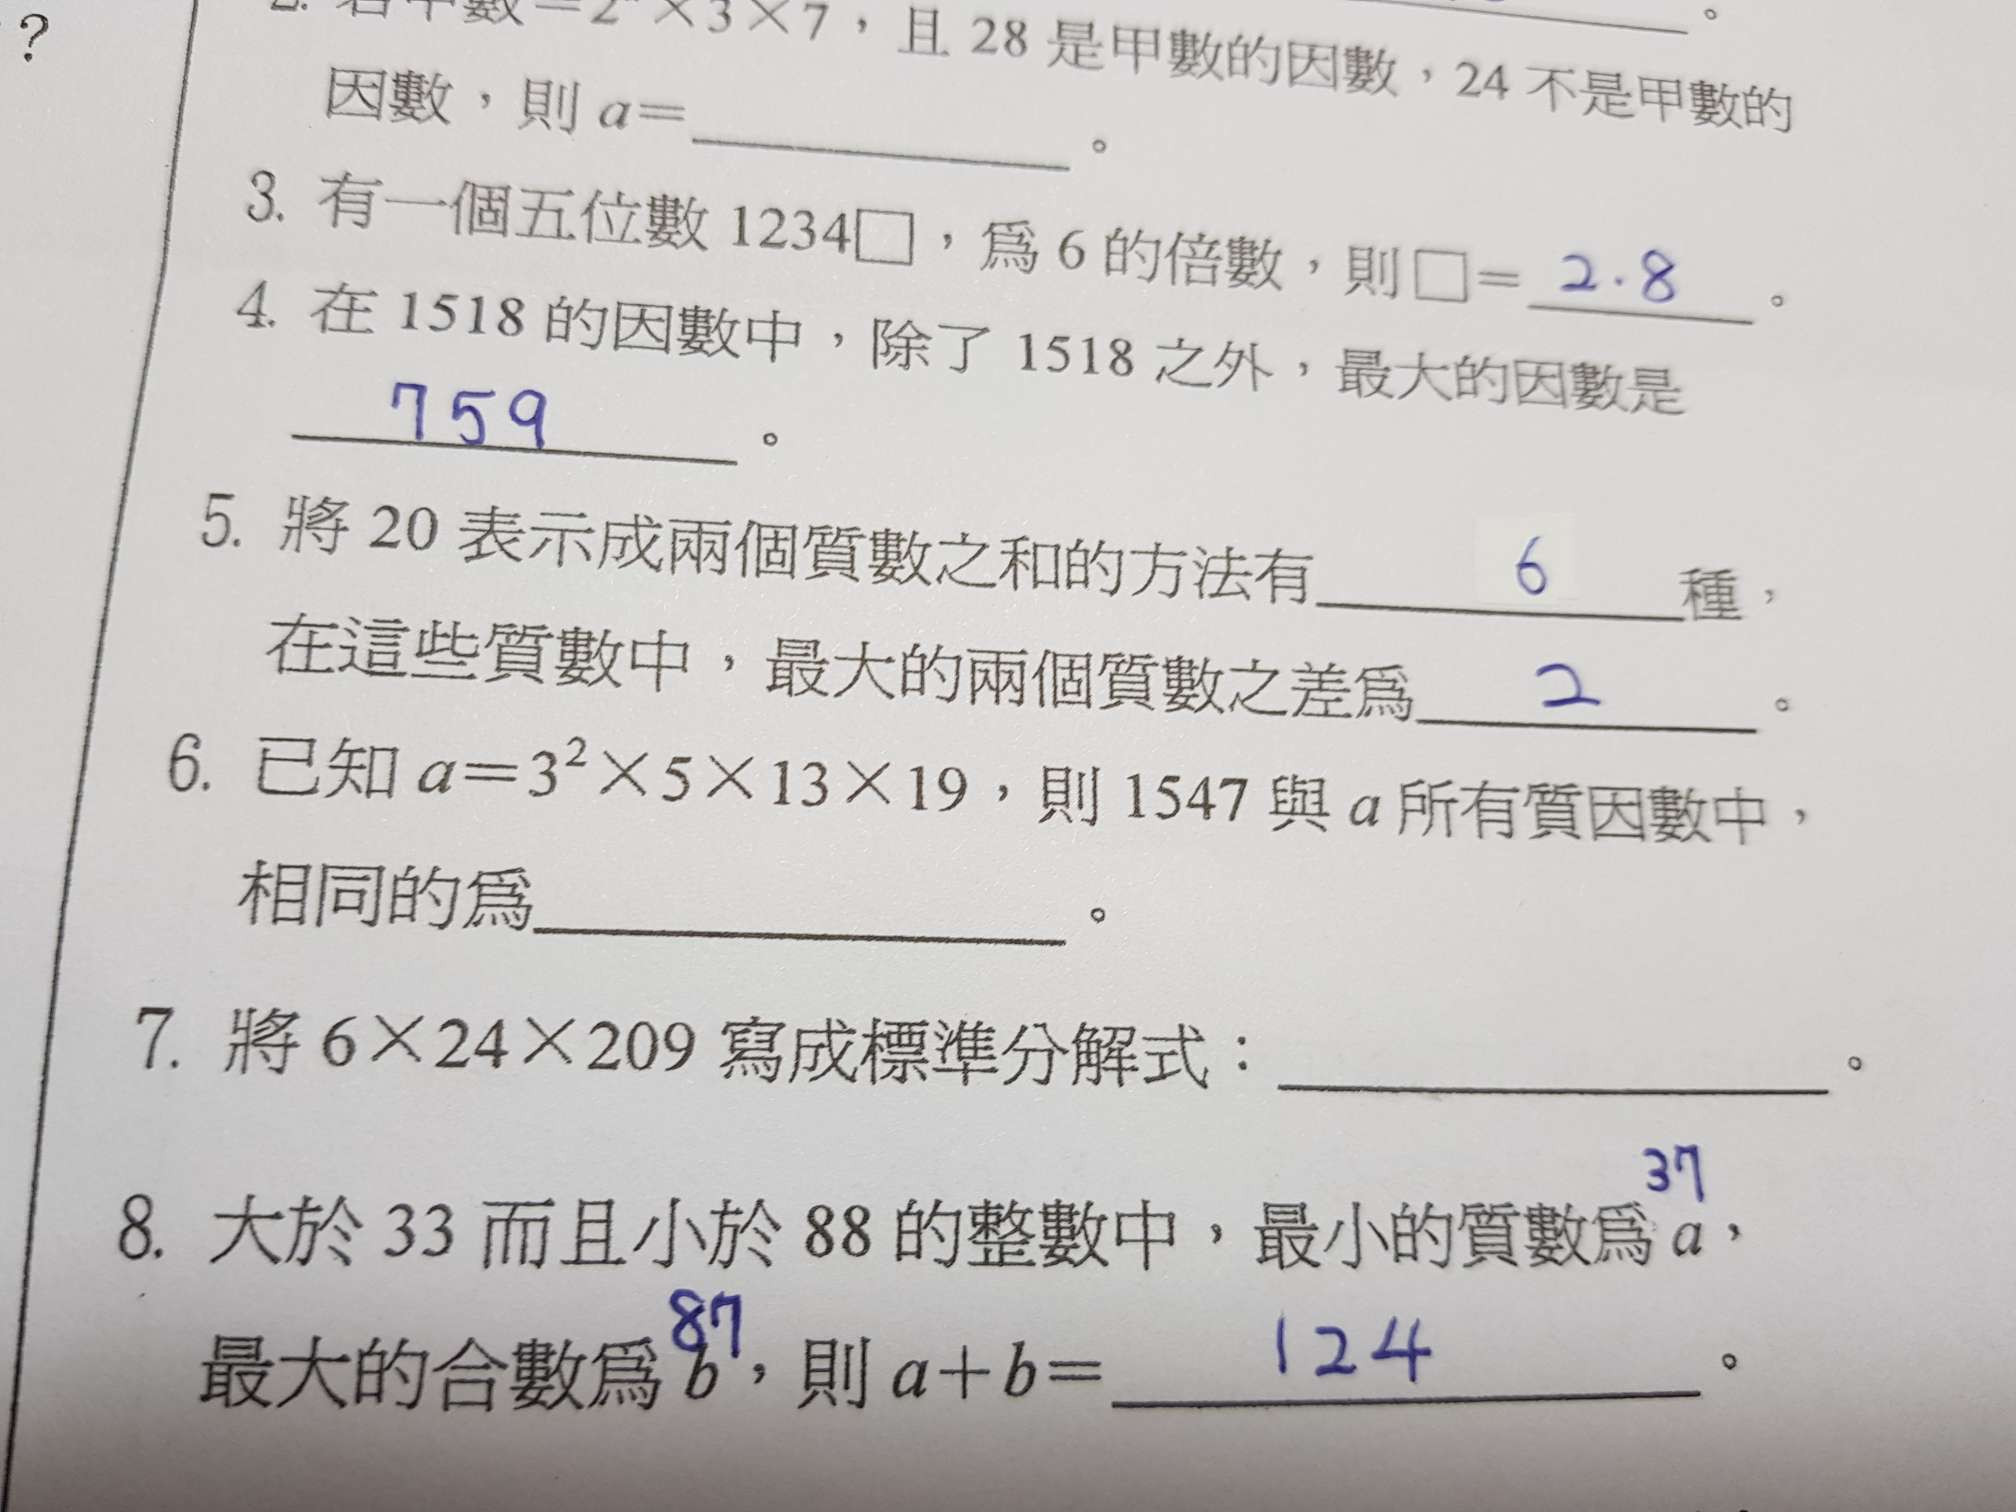 ?
2. 若甲數=2ᵃ×3×7，且 28 是甲數的因數，24 不是甲數的
因數，則 a=________。
3. 有一個五位數 1234□，爲 6 的倍數，則□= 2.8 。
4. 在 1518 的因數中，除了 1518 之外，最大的因數是
759 。
5. 將 20 表示成兩個質數之和的方法有 6 種，
在這些質數中，最大的兩個質數之差爲 2 。
6. 已知 a=3²×5×13×19，則 1547 與 a 所有質因數中，
相同的爲________。
7. 將 6×24×209 寫成標準分解式：________。
37
8. 大於 33 而且小於 88 的整數中，最小的質數爲 a，
87
最大的合數爲 b，則 a+b= 124 。